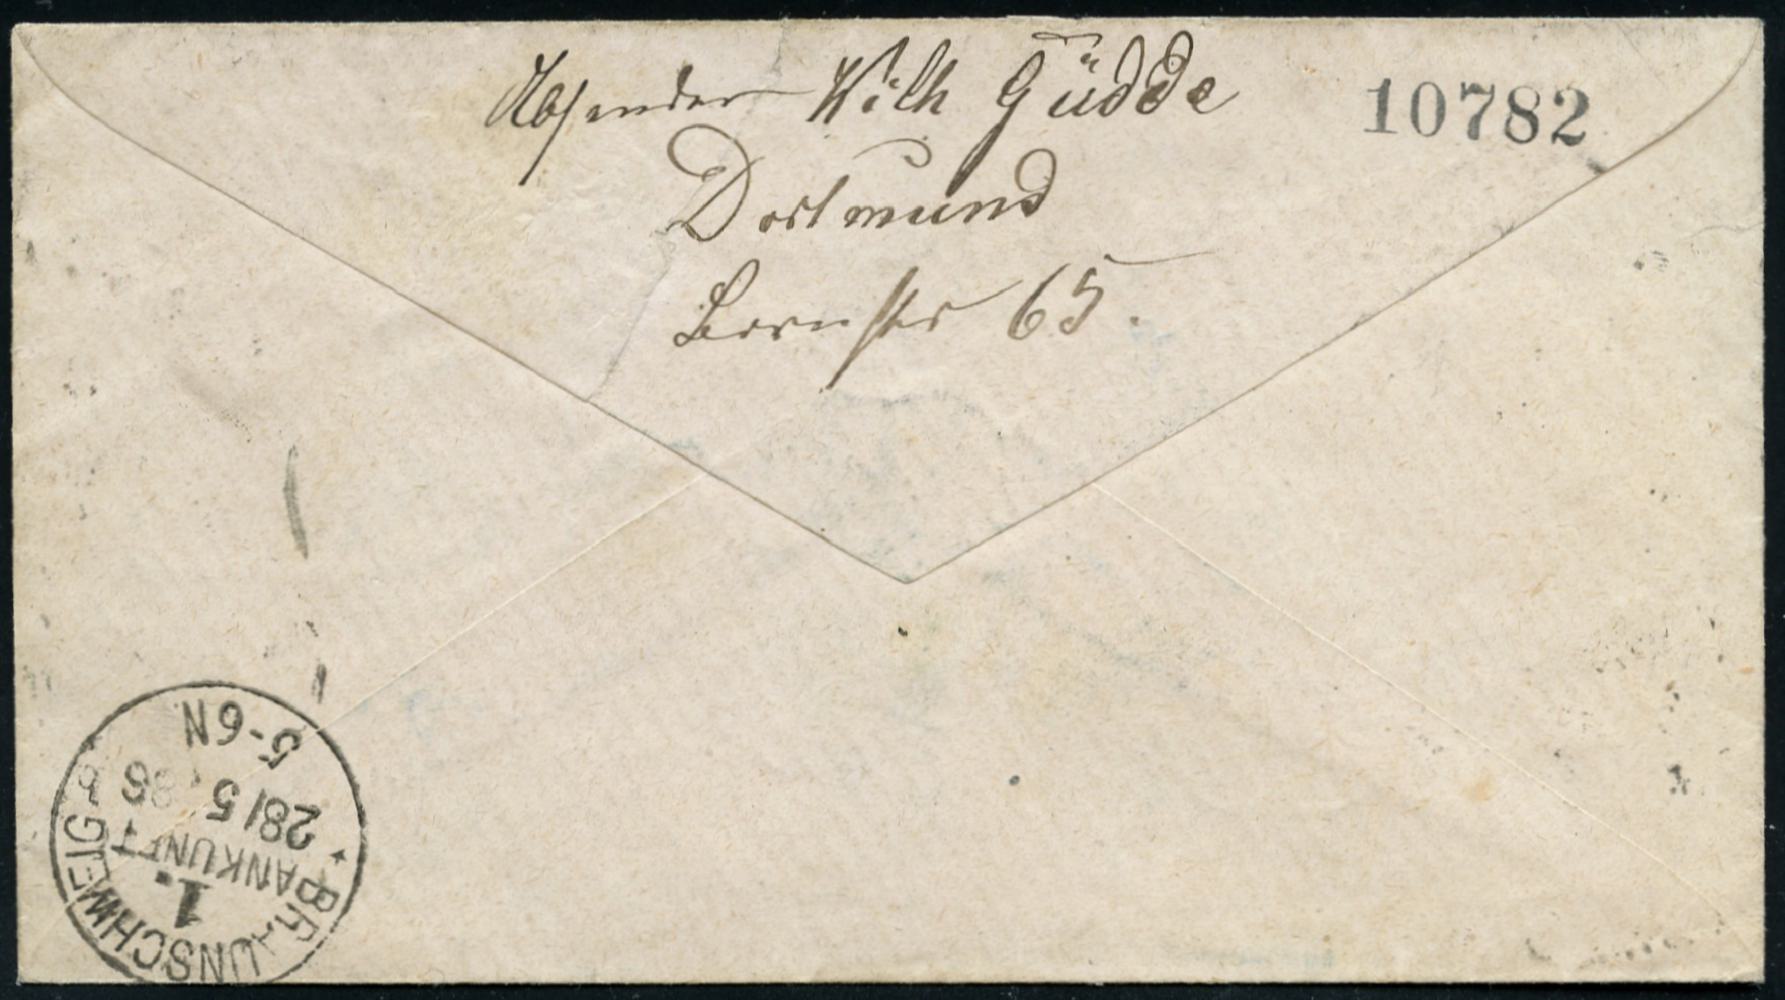 Absender Wilh Güdde
10782
Dortmund
Bornstr 65.
BRAUNSCHWEIG
1.
ANKUNFT
28/5 86
5-6N